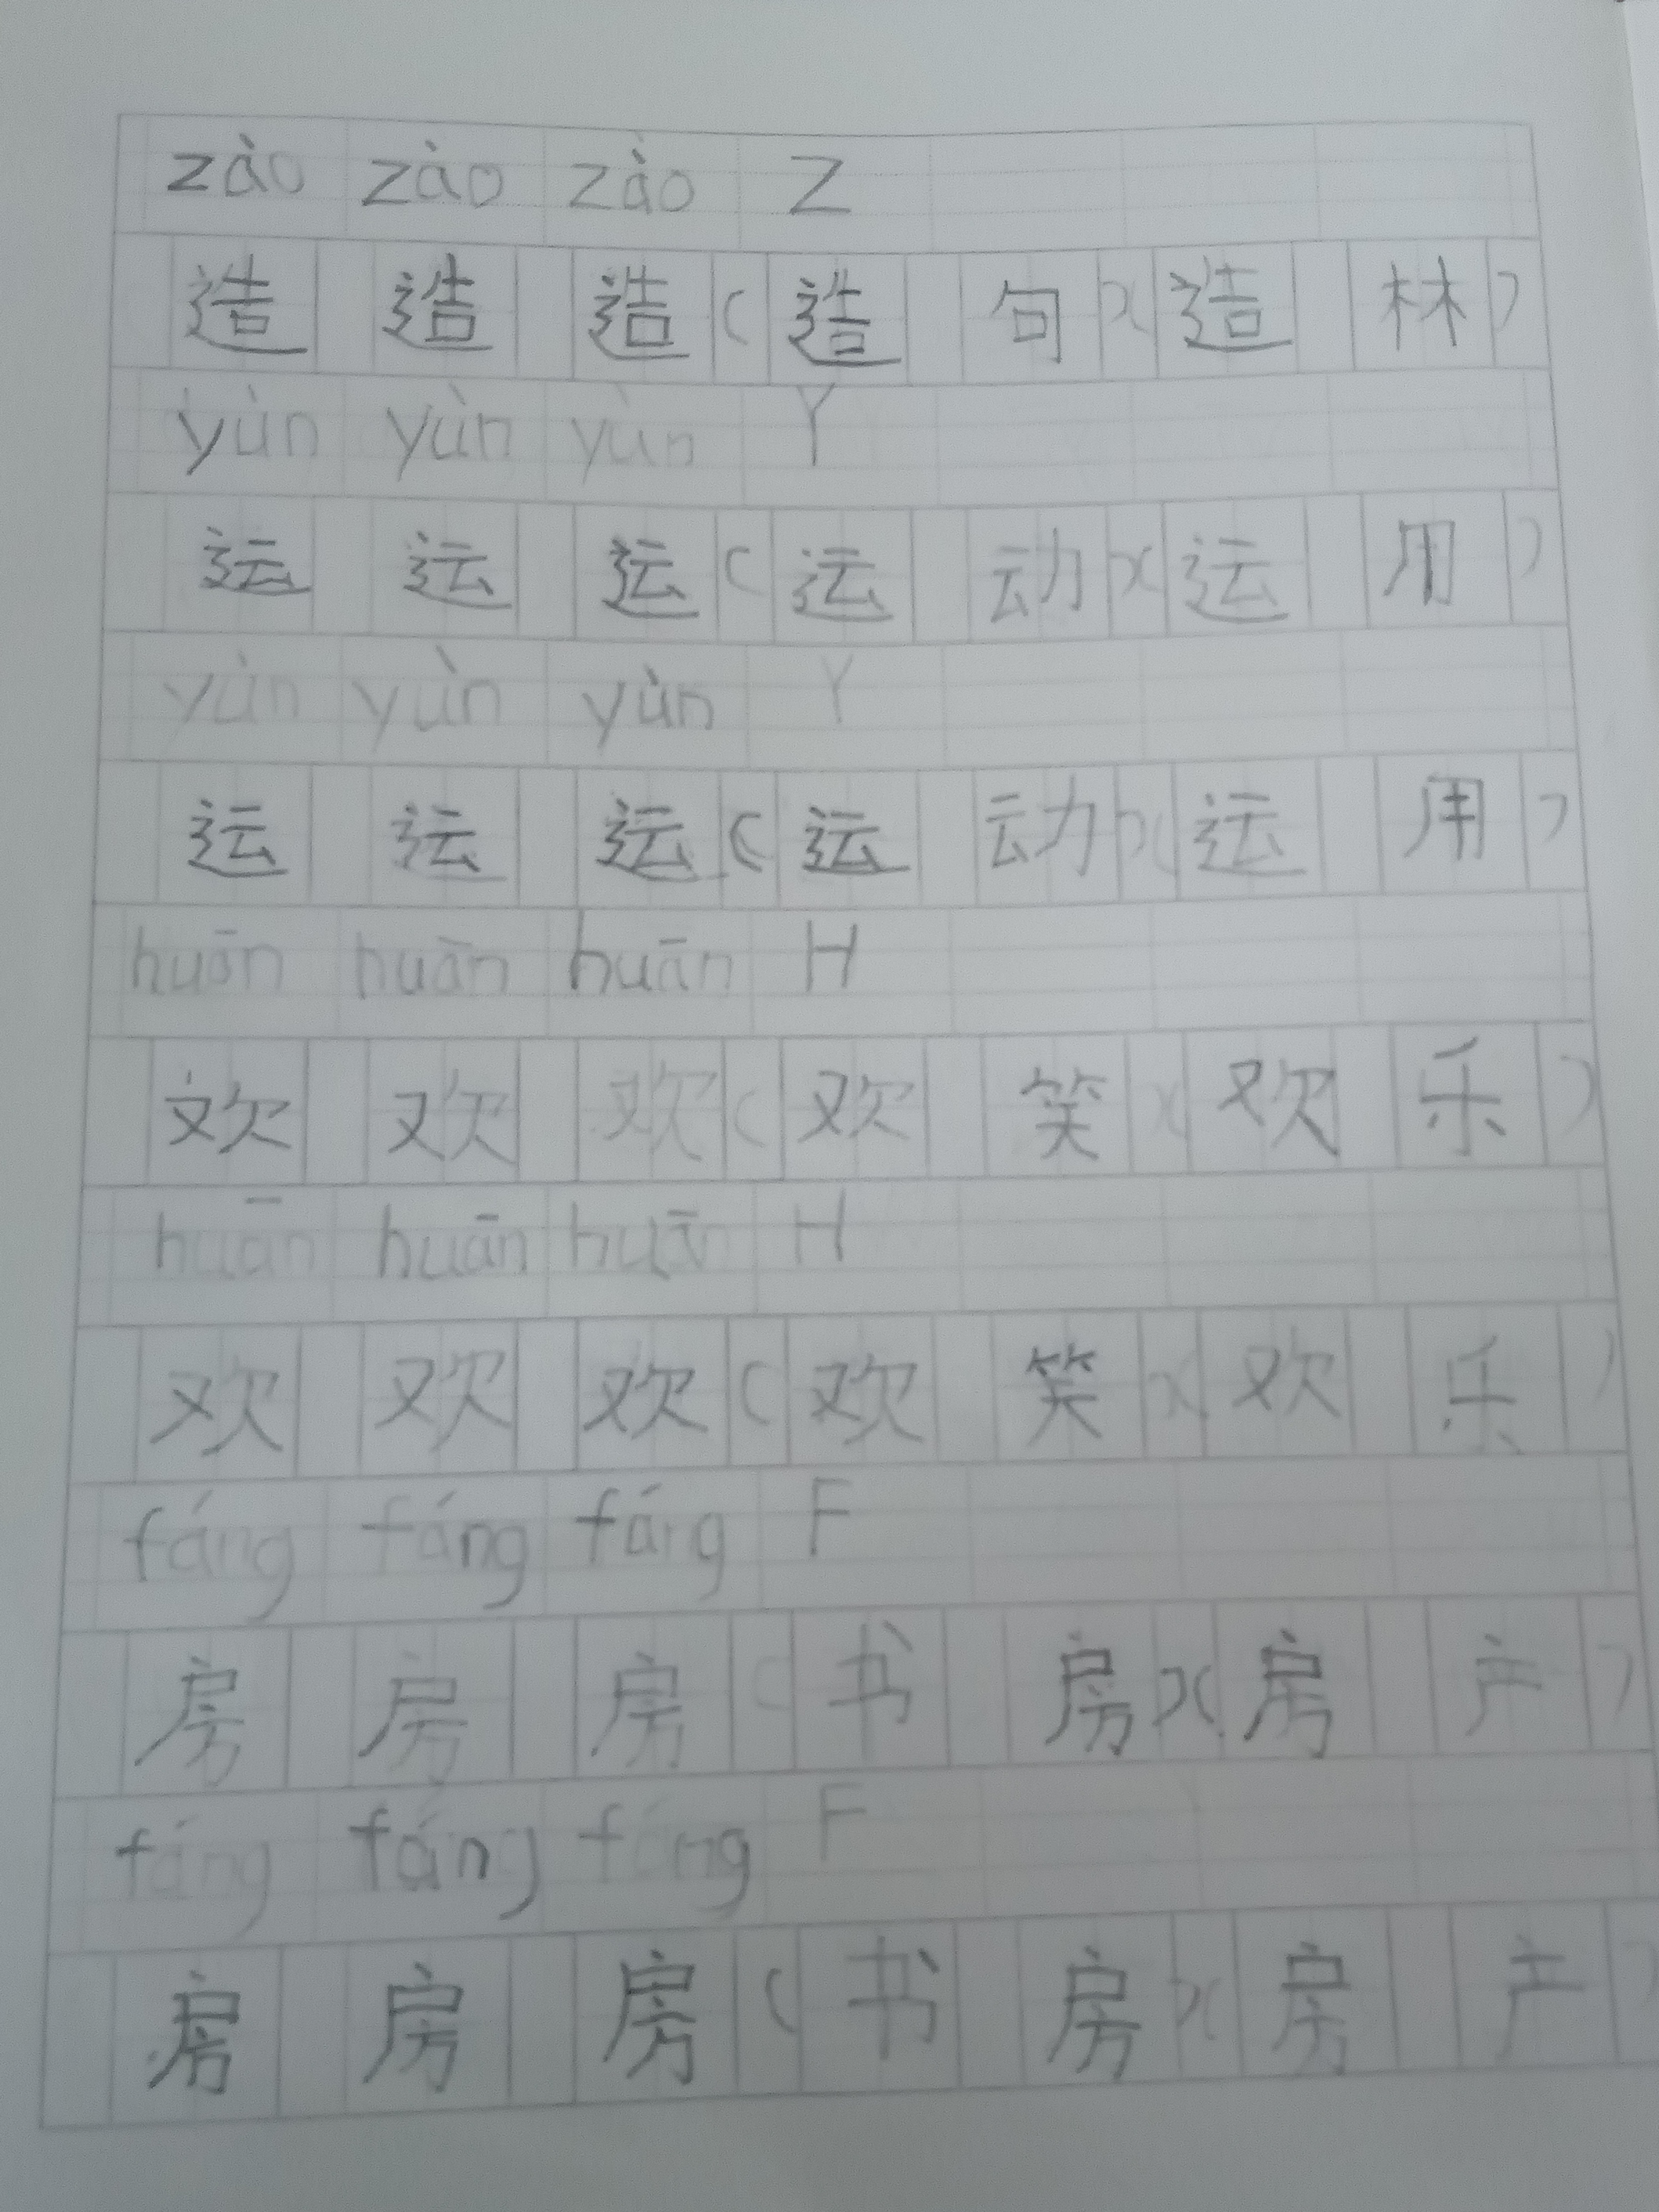 zào zào zào Z
造 造 造 ( 造 句 )( 造 林 )
yùn yùn yùn Y
运 运 运 ( 运 动 )( 运 用 )
yùn yùn yùn Y
运 运 运 ( 运 动 )( 运 用 )
huān huān huān H
欢 欢 欢 ( 欢 笑 )( 欢 乐 )
huān huān huān H
欢 欢 欢 ( 欢 笑 )( 欢 乐 )
fáng fáng fáng F
房 房 房 ( 书 房 )( 房 产 )
fáng fáng fáng F
房 房 房 ( 书 房 )( 房 产 )